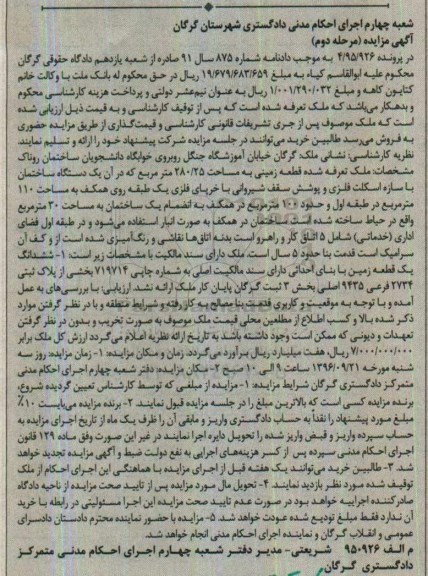 شعبه چهارم اجرای احکام مدنی دادگستری شهرستان گرگان
آگهی مزایده (مرحله دوم)
در پرونده ۴/۹۵/۹۲۶ به موجب دادنامه شماره ۸۷۵ سال ۹۱ صادره از شعبه یازدهم دادگاه حقوقی گرگان
محکوم علیه ابوالقاسم کیاء به مبلغ ۱۹/۶۷۹/۶۸۳/۶۵۹ ریال در حق محکوم له بانک ملت با وکالت خانم
کتایون کاهه و مبلغ ۱/۰۰۱/۲۹۰/۰۳۲ ریال به عنوان نیم‌عشر دولتی و پرداخت هزینه کارشناسی محکوم
و بدهکار می‌باشد که ملک تعرفه شده است که پس از توقیف کارشناسی و به قیمت ذیل ارزیابی شده
است که ملک موصوف پس از جری تشریفات قانونی کارشناسی و قیمت‌گذاری از طریق مزایده حضوری
به فروش می‌رسد طالبین خرید می‌توانند در جلسه مزایده شرکت پیشنهاد خود را ارائه و تسلیم نمایند.
نظریه کارشناسی: نشانی ملک: گرگان خیابان آموزشگاه جنگل روبروی خوابگاه دانشجویان ساختمان روناک
مشخصات: ملک تعرفه شده قطعه زمینی به مساحت ۲۸۰/۲۵ متر مربع که در آن یک دستگاه ساختمان
با سازه اسکلت فلزی و پوشش سقف شیروانی با خرپای فلزی یک طبقه روی همکف به مساحت ۱۱۰
مترمربع در طبقه اول و حدود ۱۰۰ مترمربع در همکف به انضمام یک ساختمان به مساحت ۳۰ مترمربع
واقع در حیاط ساخته شده است. ساختمان در همکف به صورت انبار استفاده می‌شود و در طبقه اول فضای
اداری (خدماتی) شامل ۵ اتاق کار و راهرو است بدنه اتاق‌ها نقاشی و رنگ‌آمیزی شده است و کف آن
سرامیک است قدمت بنا حدود ۵ سال است. ملک دارای سند مالکیت با مشخصات زیر است: ۱- ششدانگ
یک قطعه زمین با بنای احداثی دارای سند مالکیت اصلی به شماره چاپی ۷۱۹۷۱۴ بخشی از پلاک ثبتی
۲۷۳۴ فرعی ۹۴۳۵ اصلی بخش ۳ ثبت گرگان پایان کار ملک ارائه نشد. ارزیابی: با بررسی‌های به عمل
آمده و با توجه به موقعیت و کاربری قدمت بنا مصالح به کار رفته و شرایط منطقه و با در نظر گرفتن موارد
ذکر شده بالا و کسب اطلاع از مطلعین محلی قیمت ملک موصوف به صورت تخریب و بدون در نظر گرفتن
تعهدات و دیونی که ممکن است وجود داشته باشد به تاریخ ارائه نظریه اعلام می‌گردد ارزش کل ملک برابر
۷/۰۰۰/۰۰۰/۰۰۰ ریال، هفت میلیارد ریال برآورد می‌گردد. زمان و مکان مزایده: ۱- زمان مزایده: روز سه
شنبه مورخه ۱۳۹۶/۰۹/۲۱ ساعت ۹ الی ۱۰ صبح ۲- مکان مزایده: دفتر شعبه چهارم اجرای احکام مدنی
متمرکز دادگستری گرگان شرایط مزایده: ۱- مزایده از مبلغی که توسط کارشناس تعیین گردیده شروع،
برنده مزایده کسی است که بالاترین مبلغ را در جلسه مزایده قبول نمایند. ۲- برنده مزایده می‌بایست ۱۰٪
مبلغ مورد پیشنهاد را نقداً به حساب دادگستری واریز و مابقی آن را ظرف یک ماه از تاریخ اجرای مزایده به
حساب سپرده واریز و قبض واریز شده را تحویل دایره اجرا نمایند در غیر این صورت وفق ماده ۱۲۹ قانون
اجرای احکام مدنی سپرده پس از کسر هزینه‌های اجرایی به نفع دولت ضبط و آگهی مزایده تجدید خواهد
شد. ۳- طالبین خرید می‌توانند یک هفته قبل از اجرای مزایده با هماهنگی این اجرای احکام از ملک
توقیف شده مورد نظر بازدید نمایند. ۴- تحویل مال مورد مزایده پس از تایید صحت مزایده از ناحیه دادگاه
صادرکننده اجراییه خواهد بود در صورت عدم تایید صحت مزایده این اجرا مسئولیتی در رابطه با خرید
آن ندارد فقط مبلغ تودیع شده عودت خواهد شد. ۵- مزایده با حضور نماینده محترم دادستان دادسرای
عمومی و انقلاب گرگان و نماینده اجرای احکام مدنی انجام خواهد شد.
م الف ۹۵۰۹۲۶ شریعتی- مدیر دفتر شعبه چهارم اجرای احکام مدنی متمرکز
دادگستری گرگان